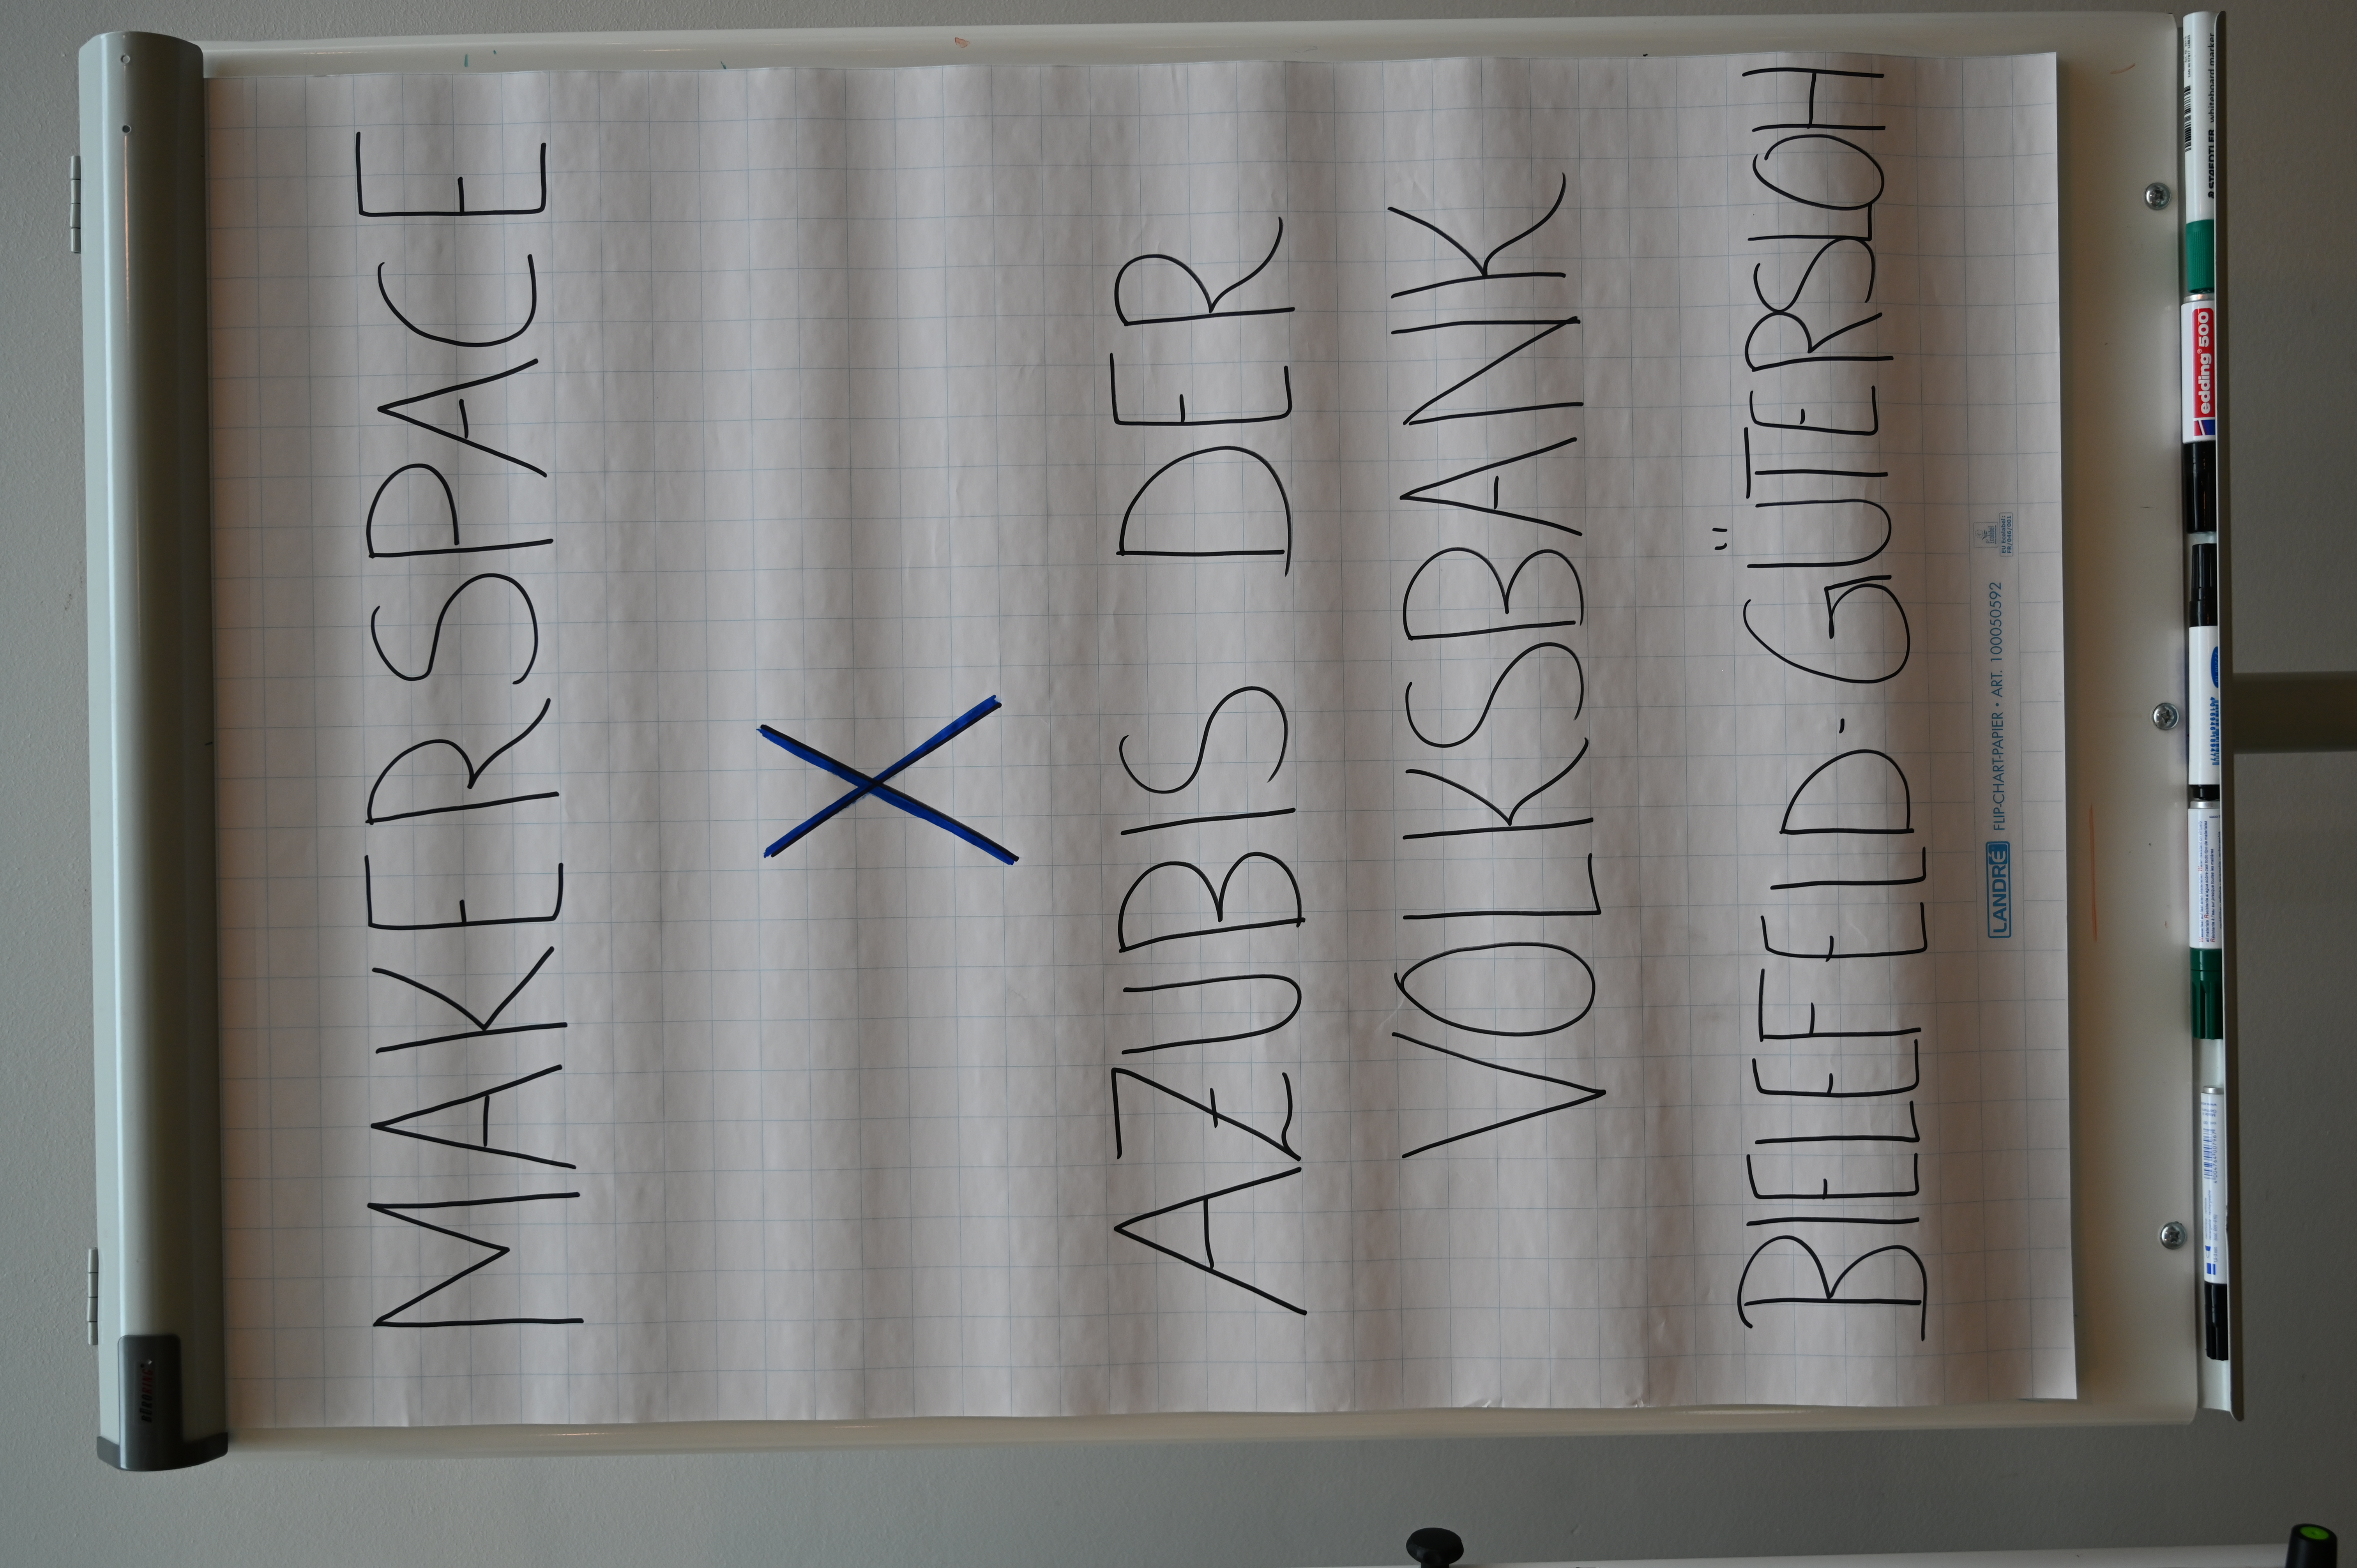 MAKERSPACE
X
AZUBIS DER
VOLKSBANK
BIELEFELD-GÜTERSLOH
LANDRÉ FLIP-CHART-PAPIER • ART. 100050592
edding 500
STAEDTLER whiteboard marker